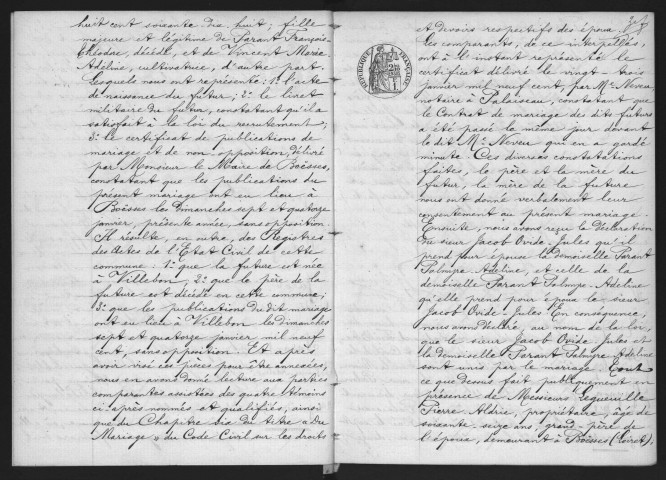 huit cent soixante dix huit ; fille
majeure et légitime de Parant François
Théodore, décédé, et de Vincent Marie
Adeline, cultivatrice, d'autre part
Lesquels nous ont représenté : 1° l'acte
de naissance du futur ; 2° le livret
militaire du futur, constatant qu'il a
satisfait à la loi du recrutement ;
3° le certificat de publications de
mariage et de non opposition, délivré
par Monsieur le Maire de Boësses,
constatant que les publications du
présent mariage ont eu lieu à
Boësses les Dimanches sept et quatorze
janvier, présente année, sans opposition.
Il résulte, en outre, des Registres
des Actes de l'Etat Civil de cette
commune : 1° que la future est née
à Villebon ; 2° que le père de la
future est décédé en cette commune ;
3° que les publications du dit mariage
ont eu lieu à Villebon les dimanches
sept et quatorze janvier mil neuf
cent, sans opposition. Et après
avoir visé ces pièces pour être annexées,
nous en avons donné lecture aux parties
comparantes assistées des quatre témoins
ci-après nommés et qualifiés, ainsi
que du Chapitre six du titre « du
Mariage » du Code Civil sur les droits
RÉPUBLIQUE FRANÇAISE
et devoirs respectifs des époux.
Les comparants, de ce interpellés,
ont à l'instant représenté le
certificat délivré le vingt trois
janvier mil neuf cent, par Me Neveu
notaire à Palaiseau, constatant que
le Contrat de mariage des dits futurs
a été passé le même jour devant
le dit Me Neveu qui en a gardé
minute. Ces diverses constatations
faites, le père et la mère du
futur, la mère de la future
nous ont donné verbalement leur
consentement au présent mariage.
Ensuite, nous avons reçu la déclaration
du sieur Jacob Ovide Jules qu'il
prend pour épouse la demoiselle Parant
Palmyre Adeline, et celle de la
demoiselle Parant Palmyre Adeline
qu'elle prend pour époux le sieur
Jacob Ovide Jules. En conséquence,
nous avons déclaré, au nom de la loi,
que le sieur Jacob Ovide Jules et
la demoiselle Parant Palmyre Adeline
sont unis par le mariage. Tout
ce que dessus fait publiquement en
présence de Messieurs Lequeuille
Pierre Aldric, propriétaire, âgé de
soixante seize ans, grand-père de
l'époux, demeurant à Boësses (Loiret).